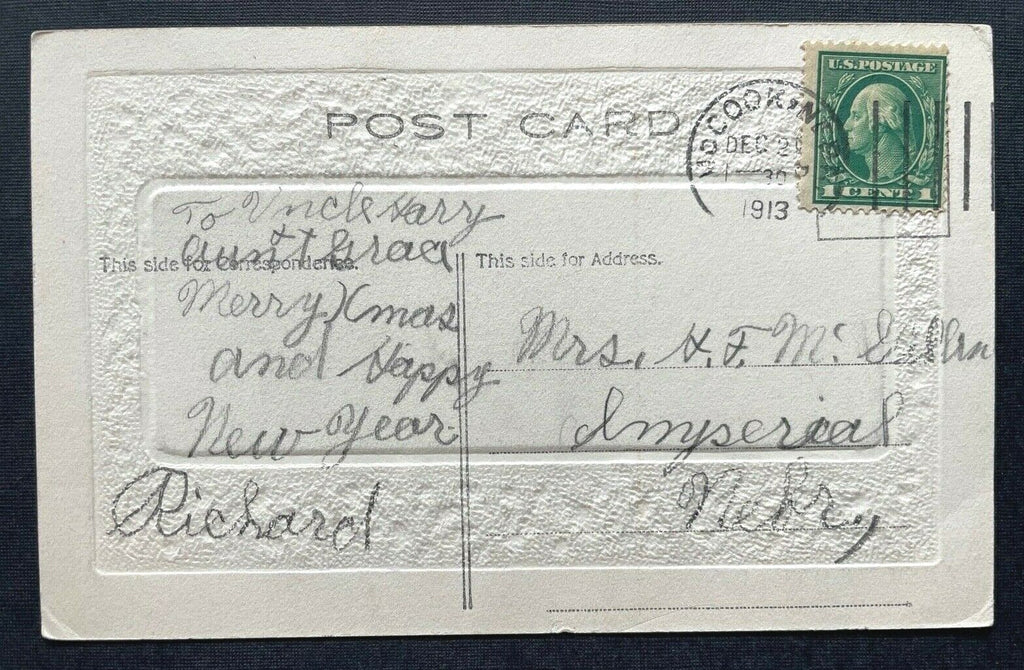 POST CARD
U.S. POSTAGE
1 CENT 1
McCOOK, NEBR
DEC 2
1—30 P
1913
This side for Correspondence.
This side for Address.
To Uncle Harry
aunt Grac
Merry Xmas
and Happy
New Year
Richard
Mrs. H. F. Mc
Imperial
Nebr,